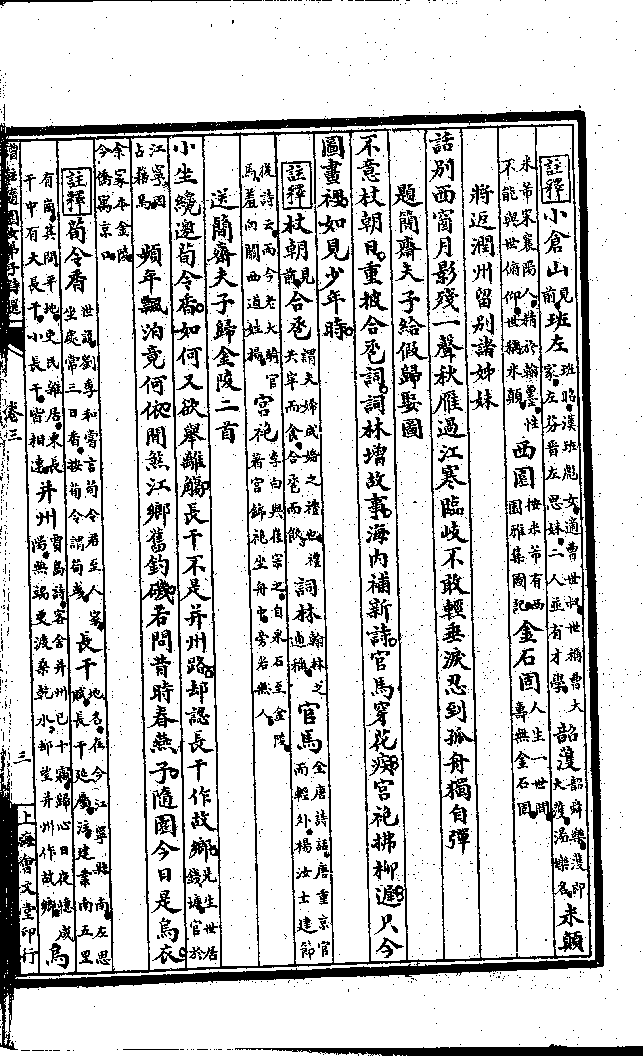 註釋 小倉山見前 班左班昭漢班彪女適曹世叔世稱曹大家左芬晉左思妹二人並有才學 韶頀韶舜樂頀即大頀湯樂名 米顛
米芾宋襄陽人精於翰墨性不能與世俯仰世稱米顛 西園按米芾有西園雅集圖記 金石固人生一世間壽無金石固
將返潤州留別諸姊妹
話別西窗月影殘一聲秋雁過江寒臨岐不敢輕垂淚忍到孤舟獨自彈
題簡齋夫子給假歸娶圖
不意杖朝日重披合卺詞詞林增故事海內補新詩官馬穿花疾宮袍拂柳遲只今
圖畫裡如見少年時
註釋 杖朝見前 合卺謂夫婦成婚之禮也禮共牢而食合卺而飲 詞林翰林之通稱 官馬全唐詩話唐重京官而輕外楊汝士建節
後詩云而今老大騎官馬羞向關西道姓楊 宮袍李白與崔宗之自采石至金陵著宮錦袍坐舟中旁若無人
送簡齋夫子歸金陵二首
小坐纔邀荀令香如何又欲舉離觴長干不是并州路却認長干作故鄉先生世居錢塘官於
江寧因占籍焉 頻年飄泊竟何依閒煞江鄉舊釣磯若問昔時春燕子隨園今日是烏衣
余家本金陵今僑寓京口
註釋 荀令香世說劉季和嘗言荀令君至人家坐處常三日香按荀令謂荀彧 長干地名在今江寧縣南左思賦長干延屬注建業南五里
有崗其間平地吏民雜居東長干中有大長干小長干皆相連 并州賈島詩客舍并州已十霜歸心日夜憶咸陽無端更渡桑乾水却望并州作故鄉 烏
卷三 三 上海會文堂印行